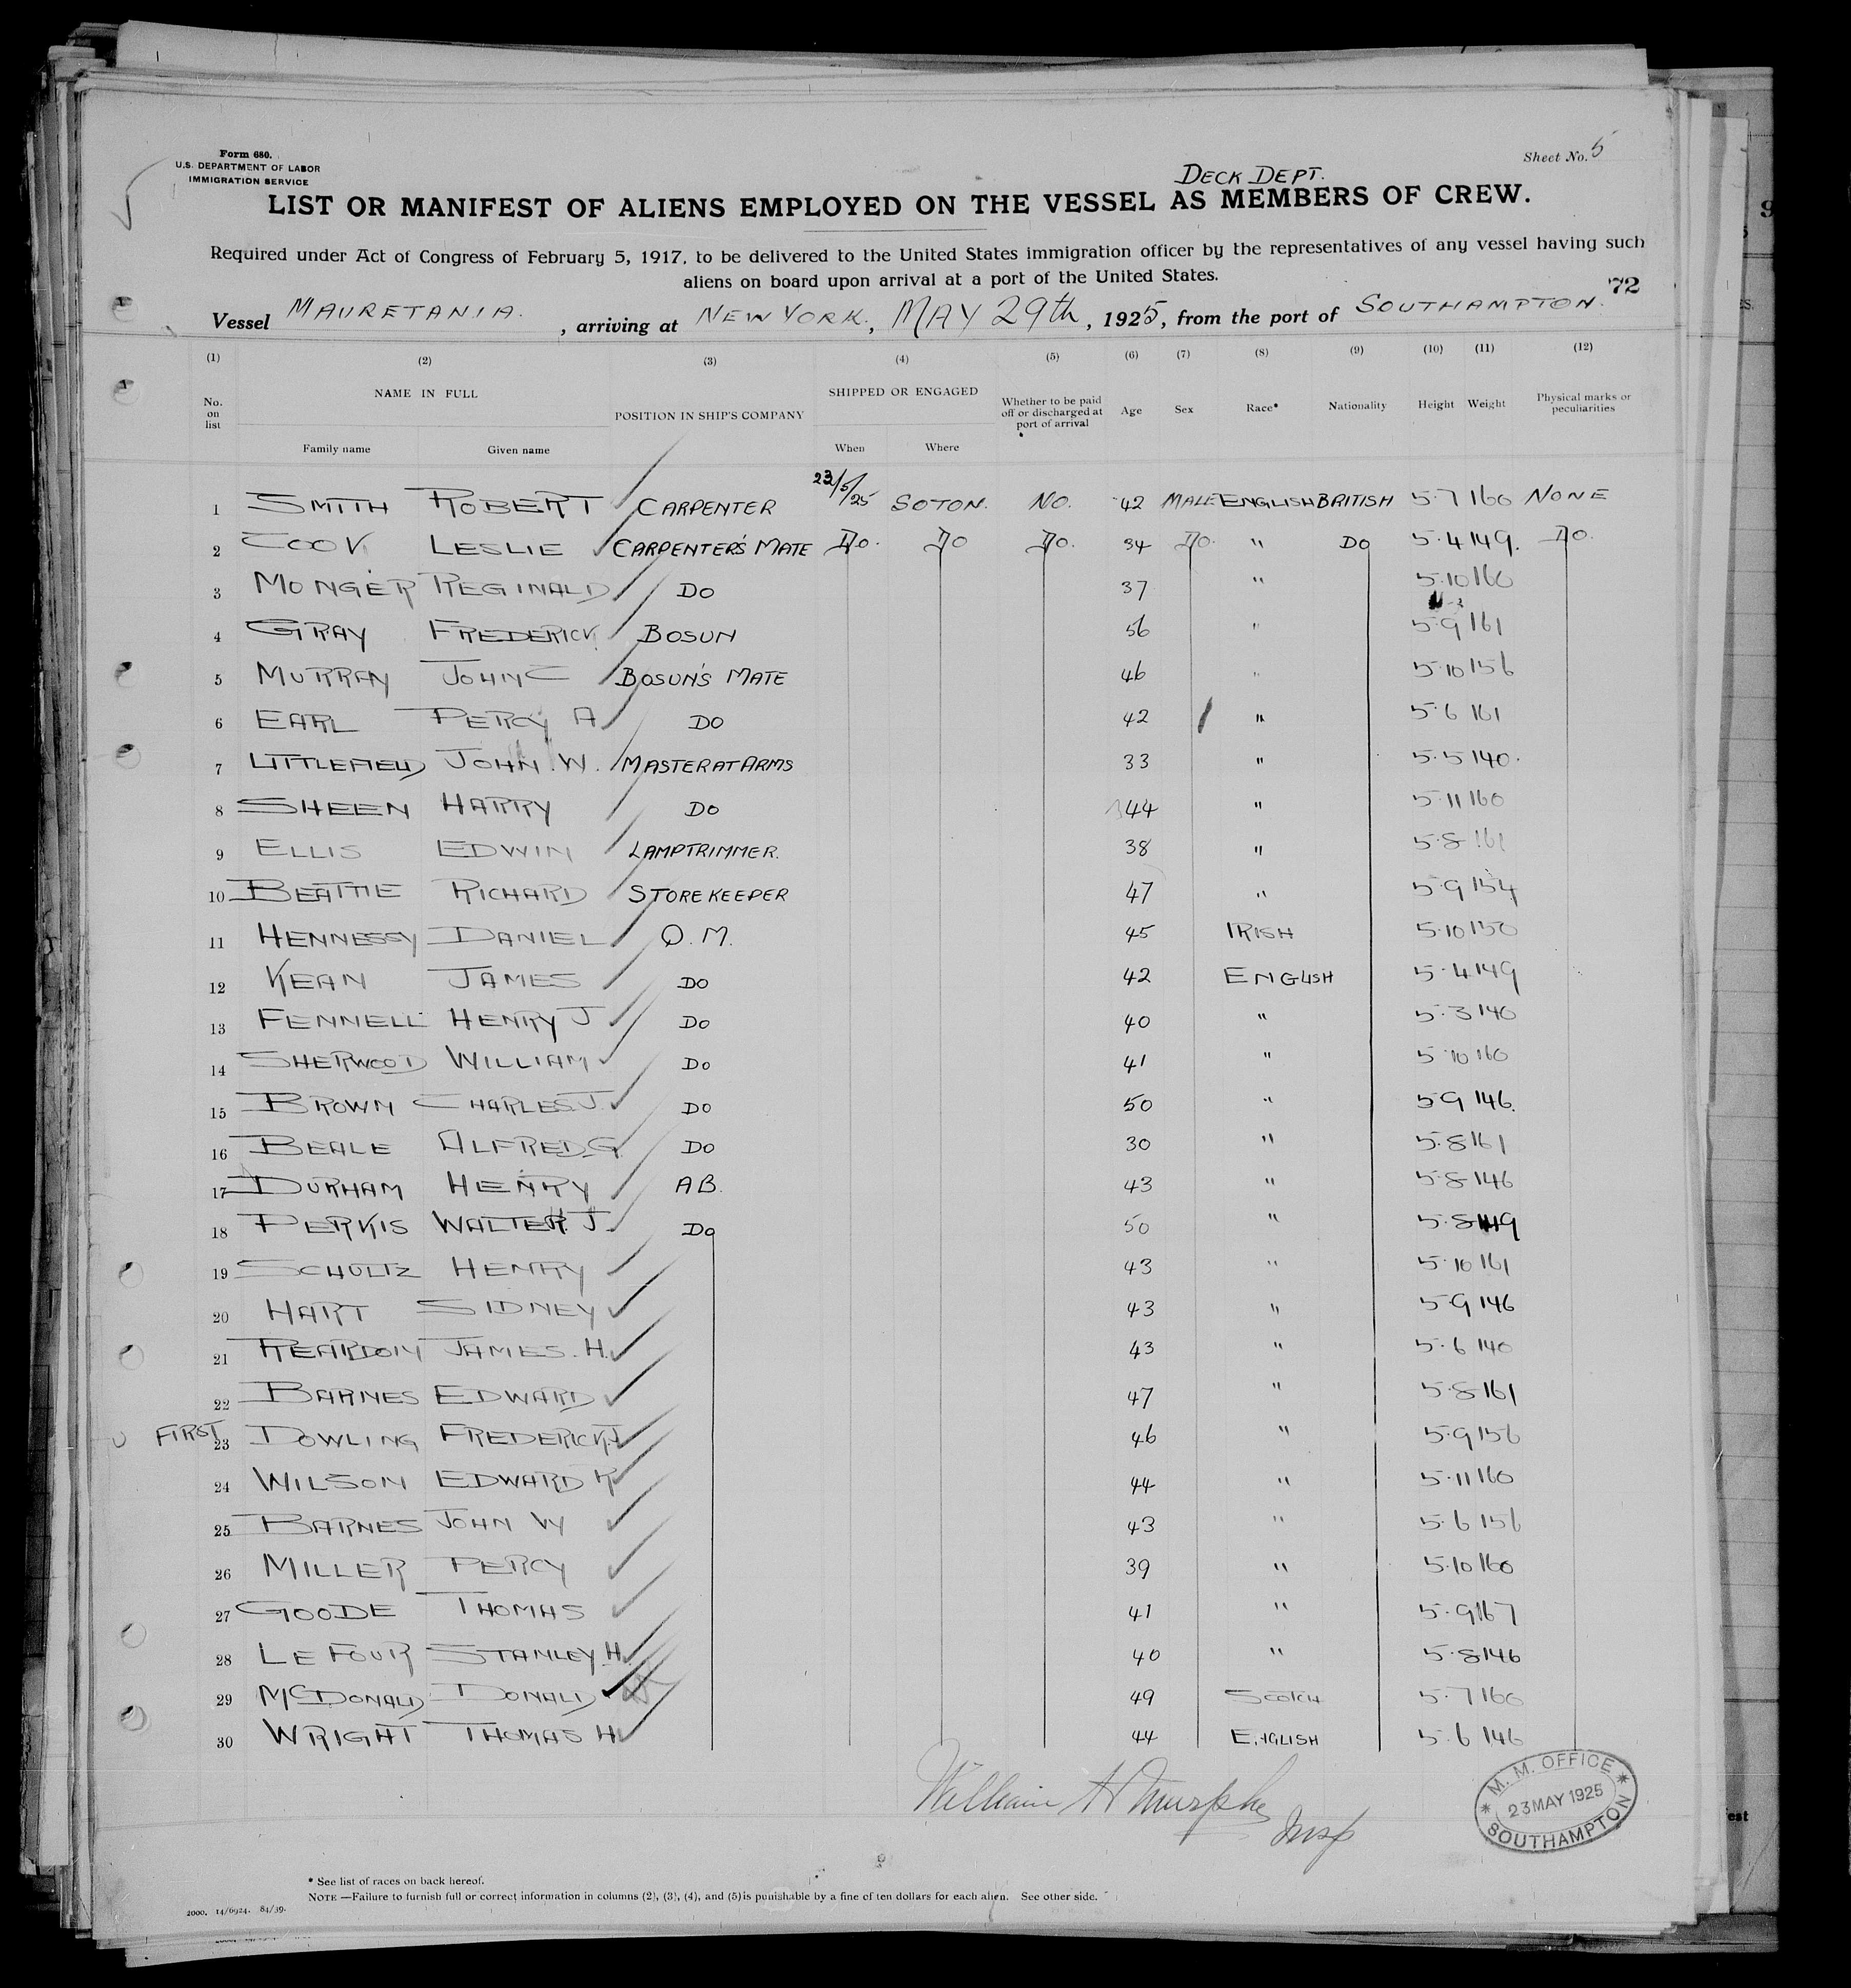 Form 680.
U.S. DEPARTMENT OF LABOR
IMMIGRATION SERVICE
Sheet No. 5
DECK DEPT.
LIST OR MANIFEST OF ALIENS EMPLOYED ON THE VESSEL AS MEMBERS OF CREW.
Required under Act of Congress of February 5, 1917, to be delivered to the United States immigration officer by the representatives of any vessel having such
aliens on board upon arrival at a port of the United States.
72
Vessel MAURETANIA. , arriving at NEW YORK. , MAY 29th , 1925, from the port of SOUTHAMPTON.
(1) (2) (3) (4) (5) (6) (7) (8) (9) (10) (11) (12)
No. on list NAME IN FULL POSITION IN SHIP'S COMPANY SHIPPED OR ENGAGED Whether to be paid off or discharged at port of arrival Age Sex Race* Nationality Height Weight Physical marks or peculiarities
Family name Given name When Where
1 SMITH ROBERT CARPENTER 23/5/25 SOTON. NO. 42 MALE ENGLISH BRITISH 5.7 160 NONE
2 COOK LESLIE CARPENTER'S MATE DO. DO DO. 34 DO. " DO 5.4 149. DO.
3 MONGER REGINALD DO 37 " 5.10 160
4 GRAY FREDERICK BOSUN 56 " 5.9 161
5 MURRAY JOHN C BOSUN'S MATE 46 " 5.10 156
6 EARL PERCY A DO 42 " 5.6 161
7 LITTLEFIELD JOHN W. MASTER AT ARMS 33 " 5.5 140.
8 SHEEN HARRY DO 44 " 5.11 160
9 ELLIS EDWIN LAMPTRIMMER. 38 " 5.8 161
10 BEATTIE RICHARD STOREKEEPER 47 " 5.9 154
11 HENNESSY DANIEL Q.M. 45 IRISH 5.10 150
12 KEAN JAMES DO 42 ENGLISH 5.4 149
13 FENNELL HENRY J DO 40 " 5.3 140
14 SHERWOOD WILLIAM DO 41 " 5.10 160
15 BROWN CHARLES J. DO 50 " 5.9 146.
16 BEALE ALFRED G. DO 30 " 5.8 161
17 DURHAM HENRY AB. 43 " 5.8 146
18 PERKIS WALTER J. DO 50 " 5.8 149
19 SCHULTZ HENRY 43 " 5.10 161
20 HART SIDNEY 43 " 5.9 146
21 REARDON JAMES. H. 43 " 5.6 140
22 BARNES EDWARD 47 " 5.8 161
FIRST 23 DOWLING FREDERICK J 46 " 5.9 156
24 WILSON EDWARD R 44 " 5.11 160
25 BARNES JOHN W 43 " 5.6 156
26 MILLER PERCY 39 " 5.10 160
27 GOODE THOMAS 41 " 5.9 167
28 LE FOUR STANLEY H. 40 " 5.8 146
29 MCDONALD DONALD 49 SCOTCH 5.7 160
30 WRIGHT THOMAS H 44 ENGLISH 5.6 146
William H Murphy
Insp
M. M. OFFICE
23 MAY 1925
SOUTHAMPTON
* See list of races on back hereof.
NOTE —Failure to furnish full or correct information in columns (2), (3), (4), and (5) is punishable by a fine of ten dollars for each alien. See other side.
2000. 14/6924. 84/39.